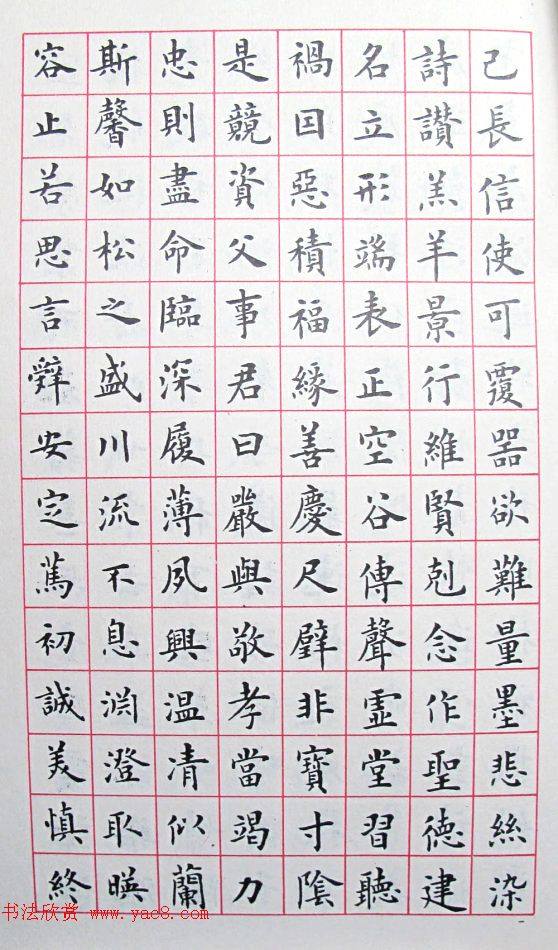 己長信使可覆器欲難量墨悲絲染
詩讃羔羊景行維賢剋念作聖德建
名立形端表正空谷傳聲虛堂習聽
禍因惡積福緣善慶尺璧非寶寸陰
是競資父事君曰嚴與敬孝當竭力
忠則盡命臨深履薄夙興温清似蘭
斯馨如松之盛川流不息淵澄取暎
容止若思言辭安定篤初誠美慎終
书法欣赏 www.yac8.com